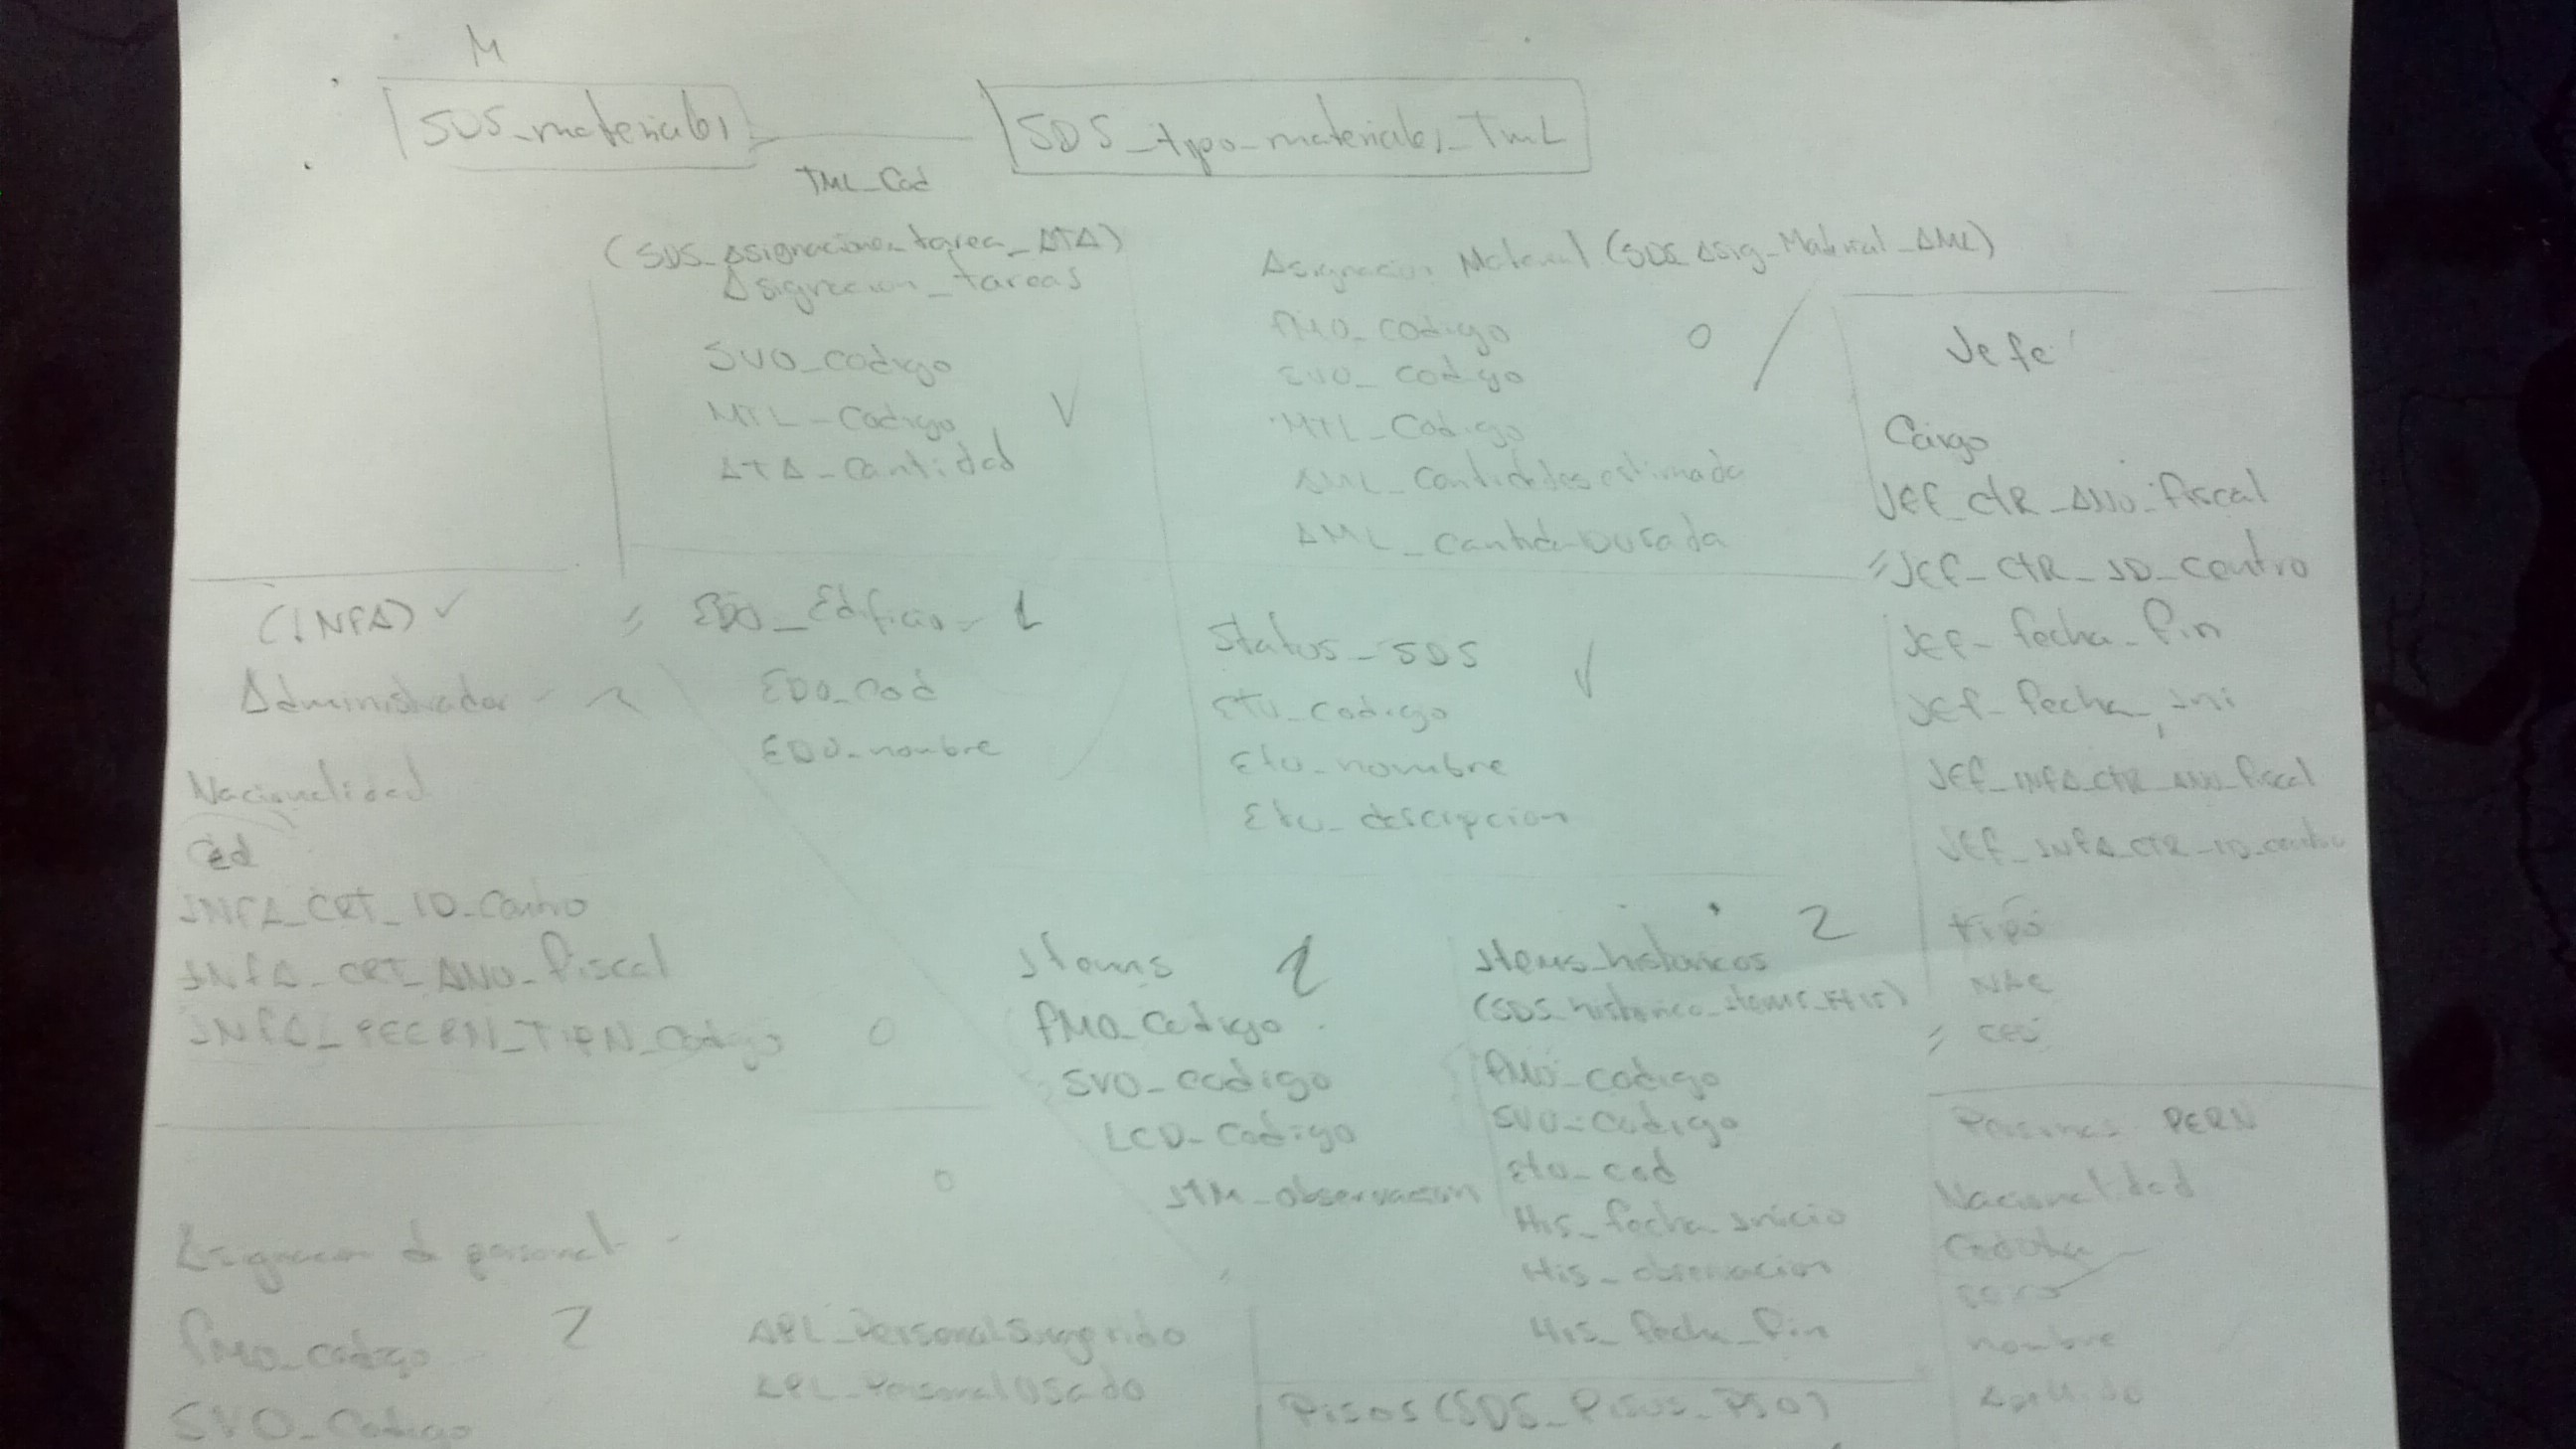 M
SDS_materiales
SDS_tipo_materiales_TML
TML_Cod
(SDS_Asignaciones_tarea_ATA)
Asignacion_tareas
SVO_codigo
MTL_Codigo
ATA_Cantidad
Asignacion Material (SDS_Asig_Material_AML)
PMO_codigo
SVO_codigo
MTL_Codigo
AML_Cantidadesestimada
AML_CantidadUsada
Jefe
Cargo
JEF_CTR_ANO_fiscal
JEF_CTR_ID_Centro
JEF_fecha_fin
JEF_fecha_ini
JEF_INFA_CTR_ANO_fiscal
JEF_INFA_CTR_ID_centro
tipo
NAC
CED
(INFA)
Administrador
Nacionalidad
Ced
INFA_CRT_ID_Centro
INFA_CRT_ANO_fiscal
EDO_Edificio 1
EDO_Cod
EDO_nombre
Status_SDS
ETO_codigo
Eto_nombre
Eto_descripcion
Items 2
PMO_Codigo
SVO_codigo
LCD_Codigo
ITM_observacion
Items_historicos 2
PMO_codigo
SVO_codigo
Eto_cod
His_fecha inicio
His_observacion
His_fecha_fin
Personas PERN
Nacionalidad
Cedula
nombre
Apellido
Asignacion de personal
PMO_codigo 2
SVO_Codigo
APL_PersonalSugerido
APL_PersonalUsado
Pisos (SDS_Pisos_PSO)